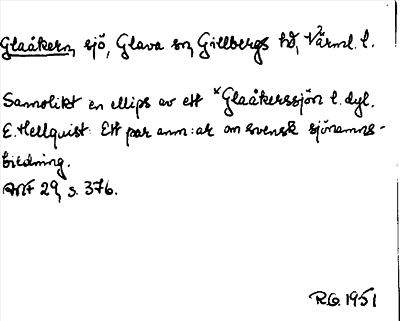 Glaåkern, sjö, Glava sn, Gillbergs hd, Värml. l.
Sannolikt en ellips av ett *Glaåkerssjön l. dyl.
E. Hellquist: Ett par anm:ar om svensk sjönamns-
bildning.
ANF 29, s. 376.
R.G. 1951